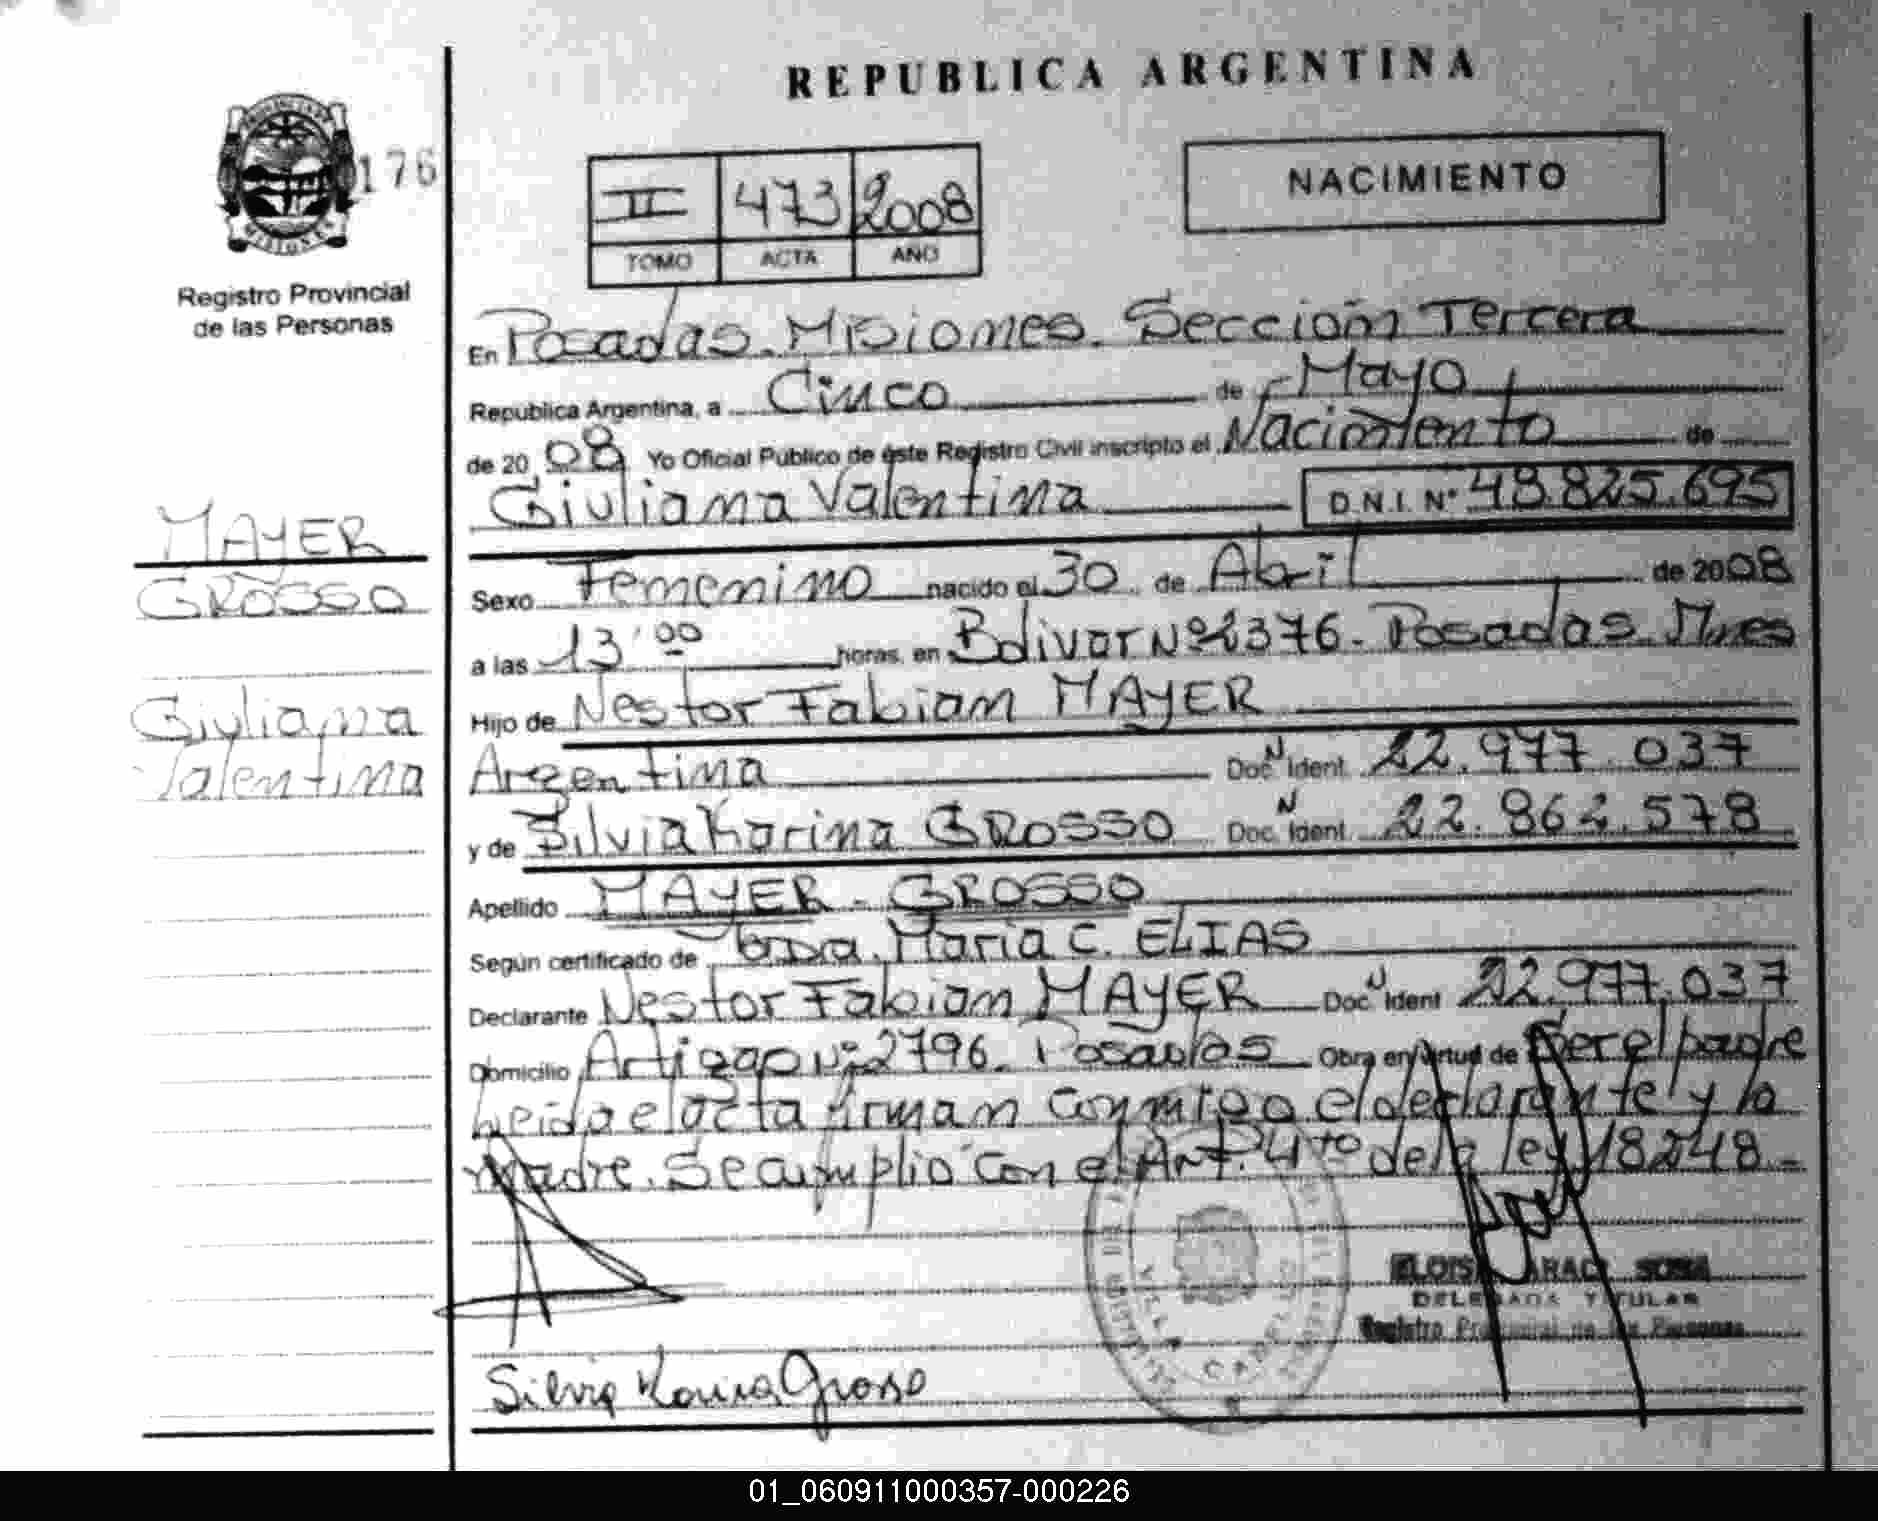 REPUBLICA ARGENTINA
PROVINCIA DE
MISIONES
176
Registro Provincial
de las Personas
II 473 2008
TOMO ACTA AÑO
NACIMIENTO
En Posadas. Misiones. Sección Tercera
Republica Argentina, a Cinco de Mayo
de 2008 Yo Oficial Público de éste Registro Civil inscripto el Nacimiento de
Giuliana Valentina D.N.I. Nº 48.825.695
MAYER
GROSSO
Giuliana
Valentina
Sexo Femenino nacido el 30 de Abril de 2008
a las 13'00 horas, en Bolivar Nº 2376. Posadas Mnes
Hijo de Nestor Fabian MAYER
Argentina Doc. N Ident. 22.977.037
y de Silvia Karina GROSSO Doc. N Ident. 22.862.578
Apellido MAYER - GROSSO
Según certificado de Dra. Maria C. ELIAS
Declarante Nestor Fabian MAYER Doc. N Ident 22.977.037
Domicilio Artigas Nº 2796. Posadas Obra en virtud de Ser el padre
Leida el acta firman conmigo el declarante y la
madre. Se cumplio con el Art. 4to de la ley 18248.-
SOSA
DELEGADA TITULAR
Registro Provincial de las Personas
Silvia Karina Grosso
01_060911000357-000226